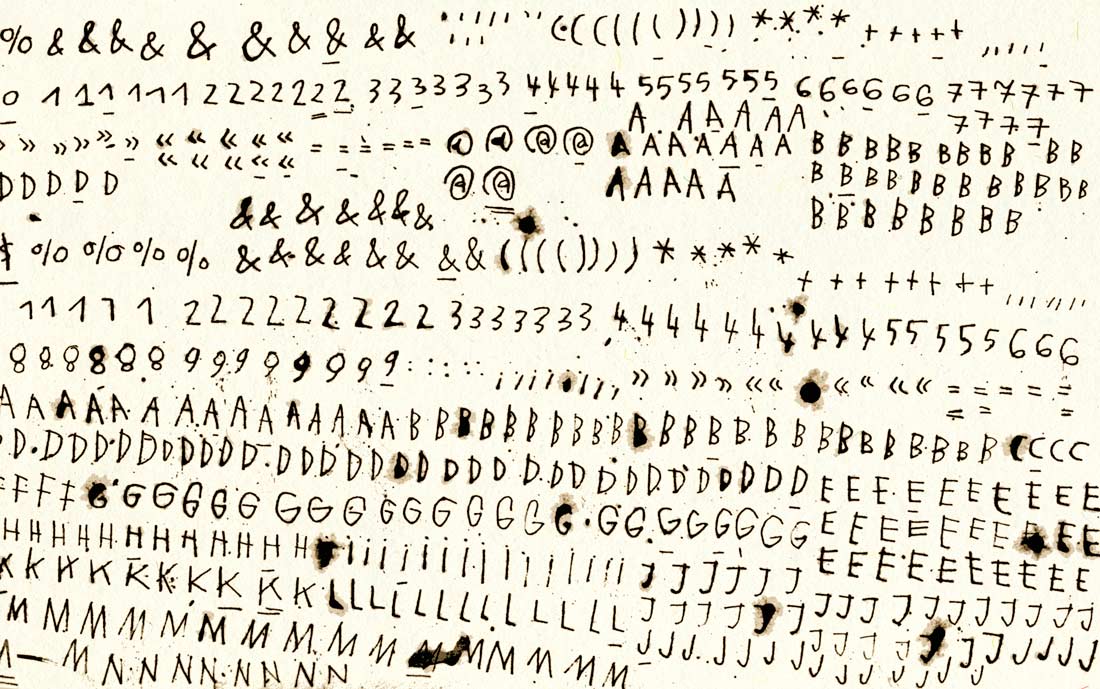 % & & & & & & & & & & ' ' ' ' ' ' ( ( ( ( ( ( ) ) ) ) * * * * + + + + + , , , , ,
0 1 1 1 1 1 1 2 2 2 2 2 2 2 2 3 3 3 3 3 3 3 4 4 4 4 4 5 5 5 5 5 5 5 6 6 6 6 6 6 7 7 7 7 7 7
A A A A A A 7 7 7 7
» » » » » » « « « « « « = = = = = = @ @ @ @ A A A A A A A B B B B B B B B B B B
« « « « « «
D D D D D @ @ A A A A A B B B B B B B B B B B
& & & & & & & B B B B B B B B
$ % % % % & & & & & & & & ( ( ( ( ) ) ) ) * * * * *
+ + + + + + + + , , , , , ,
1 1 1 1 1 2 2 2 2 2 2 2 2 2 3 3 3 3 3 3 3 4 4 4 4 4 4 4 4 4 5 5 5 5 5 6 6 6
8 8 8 8 8 8 8 9 9 9 9 9 9 9 9 9 : : : : ; ; ; ; ; ; ; ; » » » » « « « « « « = = = = =
A A A A A A A A A A A A A A A B B B B B B B B B B B B B B B B B B B B B B B B B C C C C
D D D D D D D D D D D D D D D D D D D D D D D D D D D D D E E E E E E E E E E
F F F F G G G G G G G G G G G G G G G G G G G G G G G G E E E E E E E E E
H H H H H H H H H H H H I I I I I I I I I I I I I J J J J J J E E E E E E E E E E
K K K K K K K K K K K L L L L L L L L L L L L J J J J J J J J J J J J J J J J
M M M M M M M M M M M M M M M M M M M M J J J J J J J J J J J J J J J J
M — M N N N N N N N N N J J J J J J